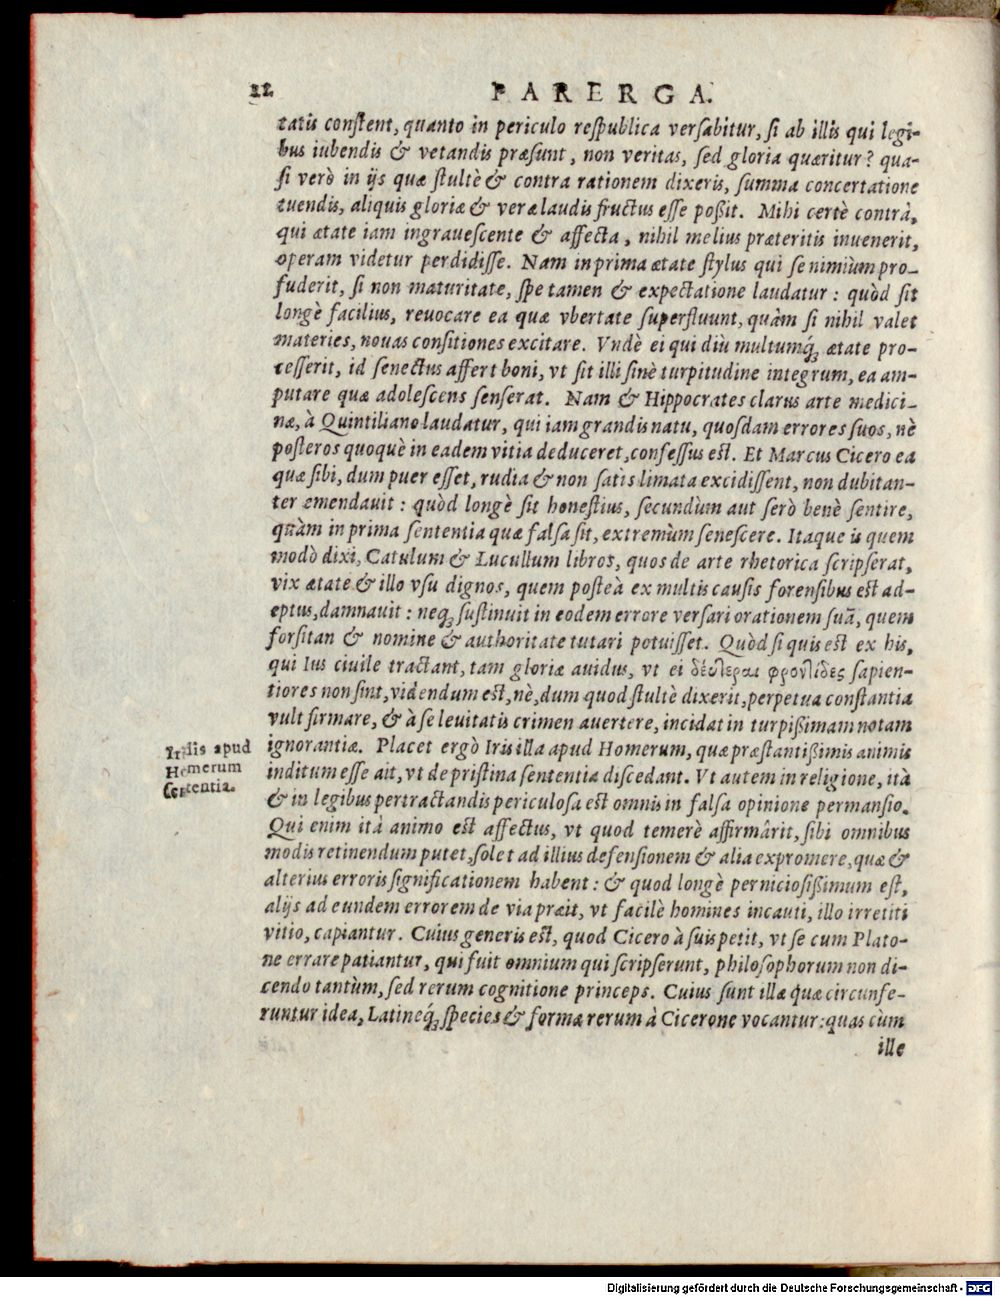 22 PARERGA.
tatis conſtent, quanto in periculo reſpublica verſabitur, ſi ab illis qui legi-
bus iubendis & vetandis præſunt, non veritas, ſed gloria quæritur? qua-
ſi verò in ijs quæ ſtultè & contra rationem dixeris, ſumma concertatione
tuendis, aliquis gloriæ & veræ laudis fructus eſſe poßit. Mihi certè contrà,
qui ætate iam ingraueſcente & affecta, nihil melius præteritis inuenerit,
operam videtur perdidiſſe. Nam in prima ætate ſtylus qui ſe nimiùm pro-
fuderit, ſi non maturitate, ſpe tamen & expectatione laudatur: quòd ſit
longè facilius, reuocare ea quæ vbertate ſuperfluunt, quàm ſi nihil valet
materies, nouas conſitiones excitare. Vndè ei qui diù multumq́; ætate pro-
ceſſerit, id ſenectus affert boni, vt ſit illi ſinè turpitudine integrum, ea am-
putare quæ adoleſcens ſenſerat. Nam & Hippocrates clarus arte medici-
næ, à Quintiliano laudatur, qui iam grandis natu, quoſdam errores ſuos, nè
poſteros quoquè in eadem vitia deduceret, confeſſus eſt. Et Marcus Cicero ea
quæ ſibi, dum puer eſſet, rudia & non ſatis limata excidiſſent, non dubitan-
ter emendauit: quòd longè ſit honeſtius, ſecundùm aut ſerò benè ſentire,
quàm in prima ſententia quæ falſa ſit, extremùm ſeneſcere. Itaque is quem
modò dixi, Catulum & Lucullum libros, quos de arte rhetorica ſcripſerat,
vix ætate & illo vſu dignos, quem poſteà ex multis cauſis forenſibus eſt ad-
eptus, damnauit: neq; ſuſtinuit in eodem errore verſari orationem ſuã, quem
forſitan & nomine & authoritate tutari potuiſſet. Quòd ſi quis eſt ex his,
qui Ius ciuile tractant, tam gloriæ auidus, vt ei δεύτεραι φροντίδες ſapien-
tiores non ſint, videndum eſt, nè, dum quod ſtultè dixerit, perpetua conſtantia
vult firmare, & à ſe leuitatis crimen auertere, incidat in turpißimam notam
ignorantiæ. Placet ergò Iris illa apud Homerum, quæ præſtantißimis animis
inditum eſſe ait, vt de priſtina ſententia diſcedant. Vt autem in religione, ità
& in legibus pertractandis periculoſa eſt omnis in falſa opinione permanſio.
Qui enim ità animo eſt affectus, vt quod temerè affirmârit, ſibi omnibus
modis retinendum putet, ſolet ad illius defenſionem & alia expromere, quæ &
alterius erroris ſignificationem habent: & quod longè pernicioſißimum eſt,
alijs ad eundem errorem de via præit, vt facilè homines incauti, illo irretiti
vitio, capiantur. Cuius generis eſt, quod Cicero à ſuis petit, vt ſe cum Plato-
ne errare patiantur, qui fuit omnium qui ſcripſerunt, philoſophorum non di-
cendo tantùm, ſed rerum cognitione princeps. Cuius ſunt illæ quæ circunfe-
runtur ideæ, Latineq́; ſpecies & formæ rerum à Cicerone vocantur: quas cùm
ille
Iridis apud
Homerum
ſententia.
Digitalisierung gefördert durch die Deutsche Forschungsgemeinschaft - DFG